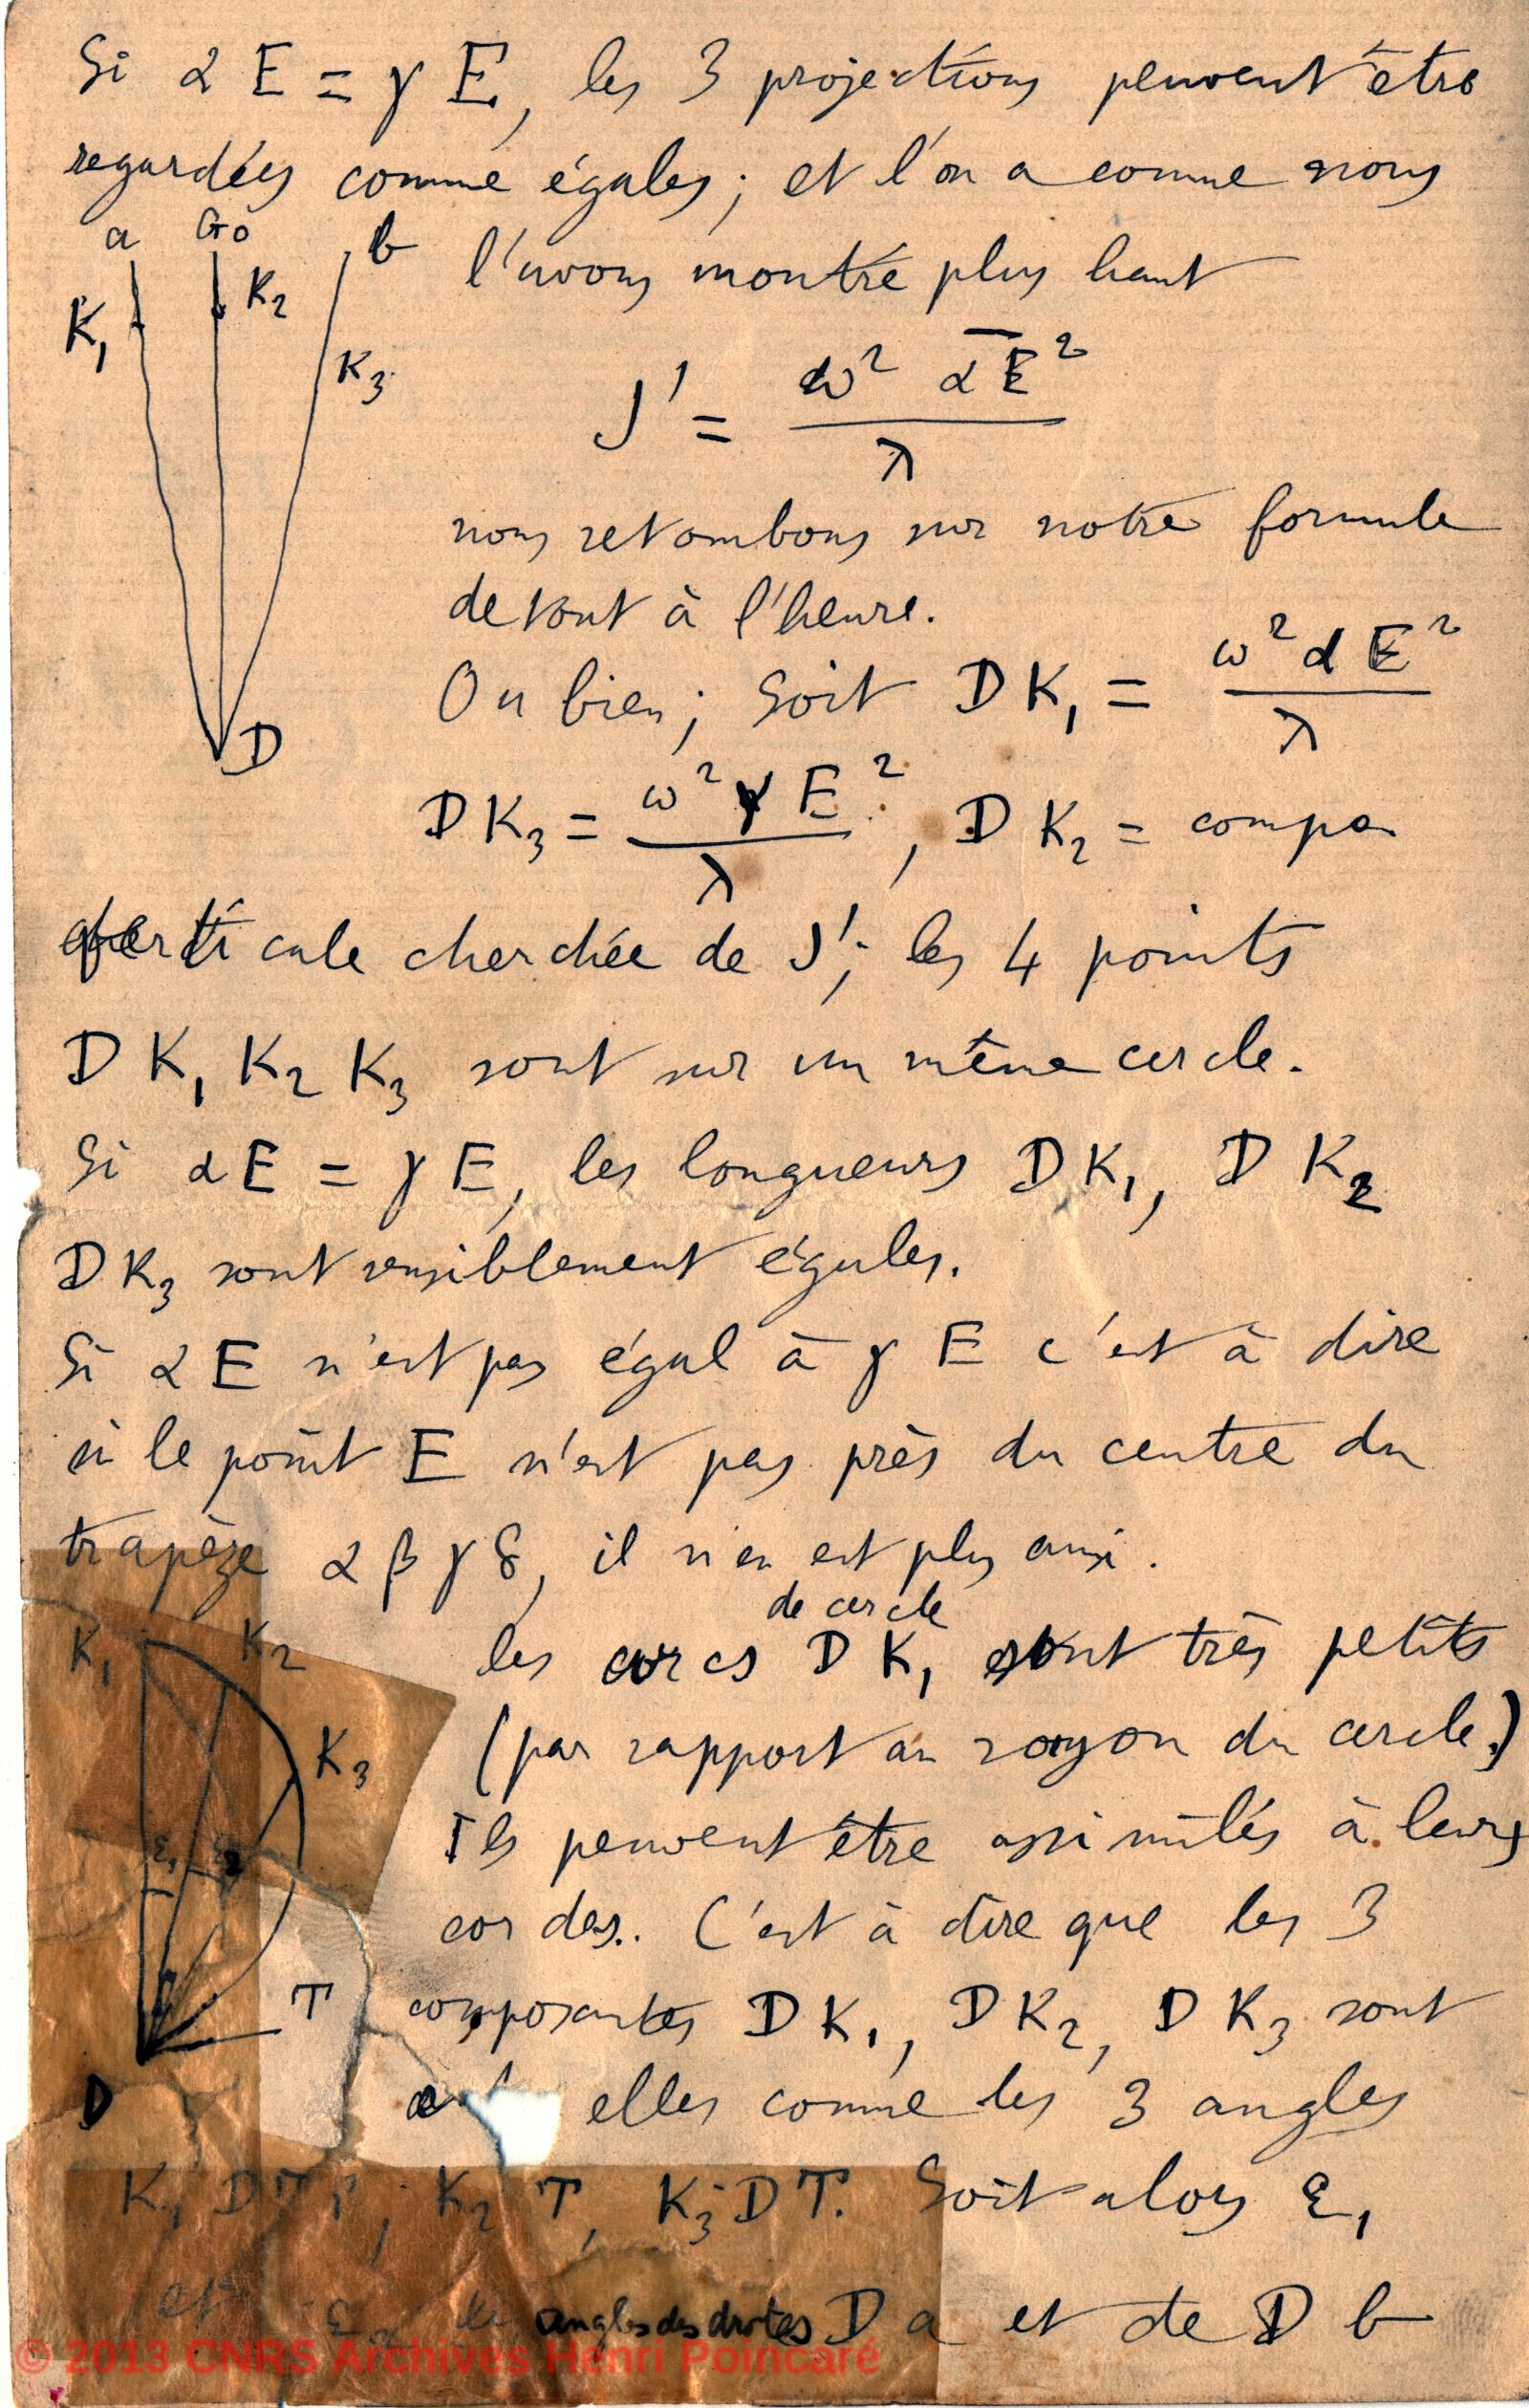 Si α E = γ E, les 3 projections peuvent être
regardées comme égales; et l'on a comme nous
a G0 b l'avons montré plus haut
K1 K2 K3
J' = ω² αE² / λ
nous retombons sur notre formule
de tout à l'heure.
Ou bien; Soit D K1 = ω² α E² / λ
D K3 = ω² γ E² / λ, D K2 = compo
verticale cherchée de J'; les 4 points
D K1 K2 K3 sont sur un même cercle.
Si α E = γ E, les longueurs D K1, D K2
D K3 sont sensiblement égales.
Si α E n'est pas égal à γ E c'est à dire
si le point E n'est pas près du centre du
trapèze α β γ δ, il n'en est plus ainsi.
de cercle
K1 K2 les arcs D K1 sont très petits
K3 (par rapport au rayon du cercle.)
ε1 ε2 Ils peuvent être assimilés à leurs
cordes. C'est à dire que les 3
T composantes D K1, D K2, D K3 sont
D elles comme les 3 angles
K1 D T, K2 T, K3 D T. Soit alors ε1
et ε angles des droites D a et de D b
© 2013 CNRS Archives Henri Poincaré